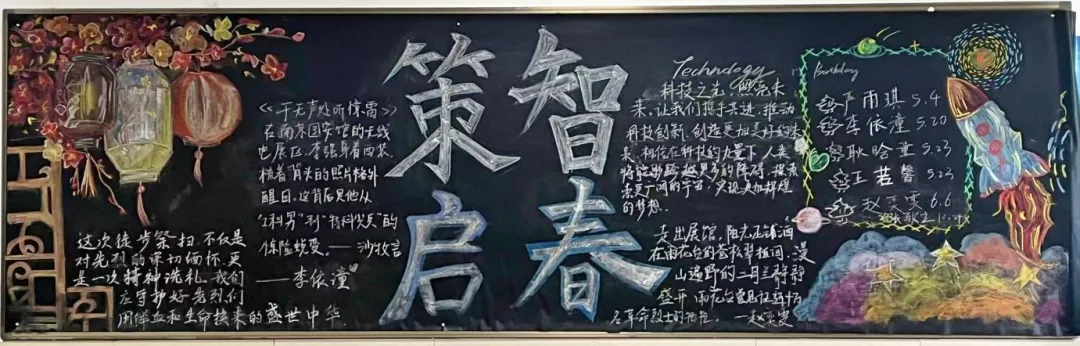 策智
启春
《于无声处听惊雷》
在南京国安馆的无线
电展区，李强身着西装，
梳着背头的照片格外
醒目。这背后是他从
"理科男"到"特科尖兵"的
惊险蜕变。——沙牧言
这次徒步祭扫,不仅是
对先烈的深切缅怀,更
是一次精神洗礼。我们
应守护好先烈们
用鲜血和生命换来的盛世中华.
——李依潼
Technology
科技之光,照亮未
来,让我们携手共进,推动
科技创新,创造更加美好的未
来,相信在科技的力量下,人类
将能跨越更多的障碍,探索
未更广阔的宇宙,实现更加辉煌
的梦想。
走出展馆，阳光正铺洒
在雨花台的苍松翠柏间，漫
山遍野的二月兰静静
盛开
名革命烈士的牺牲。 —赵奕雯
Birthday
严雨琪 5.4
李依潼 5.20
耿晗童 5.23
王若馨 5.23
赵奕雯 6.6